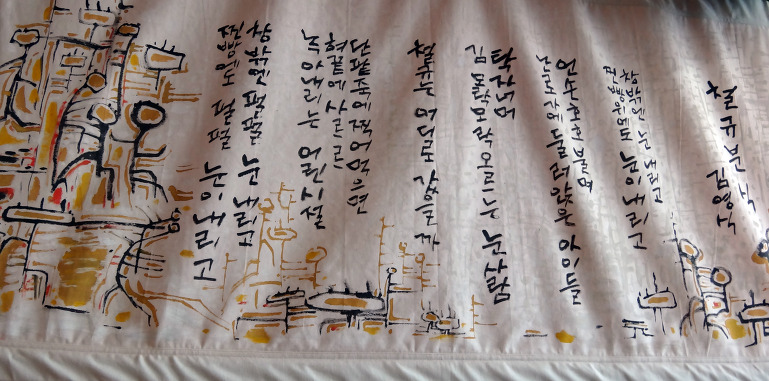 철규분식
김영식
창밖엔 눈 내리고
찐빵위에도 눈이 내리고
언 손 호호 불며
난로가에 둘러앉은 아이들
탁자 너머
김 모락모락 오르는 눈사람
철규는 어디로 갔을까
단팥죽에 찍어 먹으면
혀끝에 사르르
녹아내리는 어린시절
창밖엔 펄펄 눈 내리고
찐빵에도 펄펄 눈이 내리고